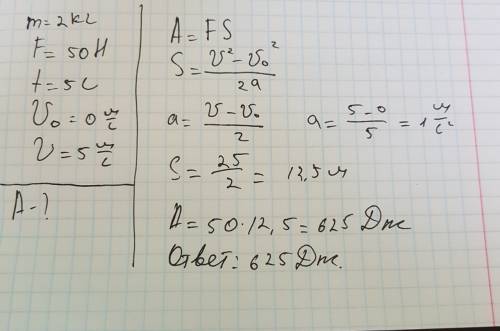 m = 2кг
F = 50Н
t = 5с
υ₀ = 0 м/с
υ = 5 м/с
A - ?
A = FS
S = (υ² - υ₀²)/2a
a = (υ - υ₀)/2 a = (5-0)/5 = 1 м/с²
S = 25/2 = 13,5 м
A = 50·12,5 = 625 Дж
Ответ: 625 Дж.